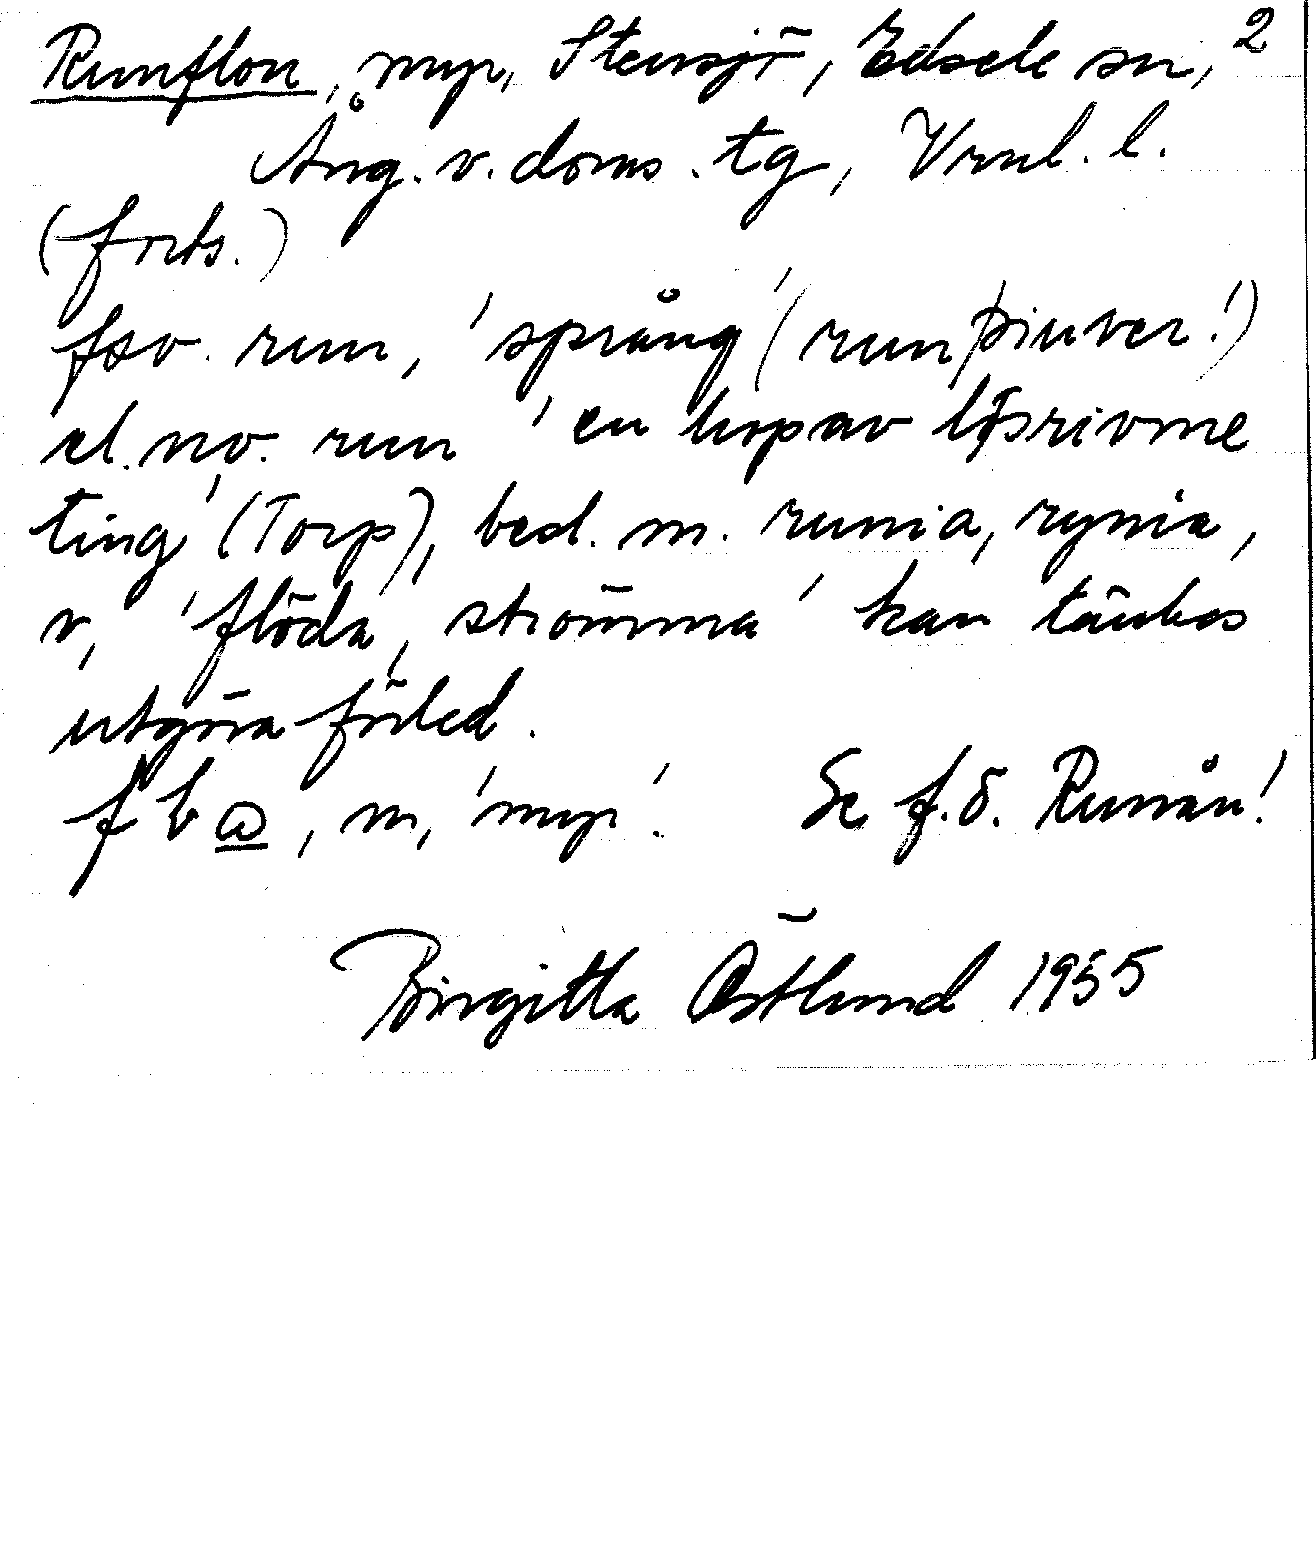 Runflon, myr, Stensjö, Edsele sn, 2
Ång. v. doms. tg, Vrnl. l.
(forts.)
fsv. run, 'språng' (runþiuver!)
el. no. run 'en hop av lösrivne
ting' (Torp), besl. m. runia, rynia,
v, 'flöda, strömma' kan tänkas
utgöra förled.
f b a, m, 'myr'. Se f.ö. Runån!
Birgitta Östlund 1955